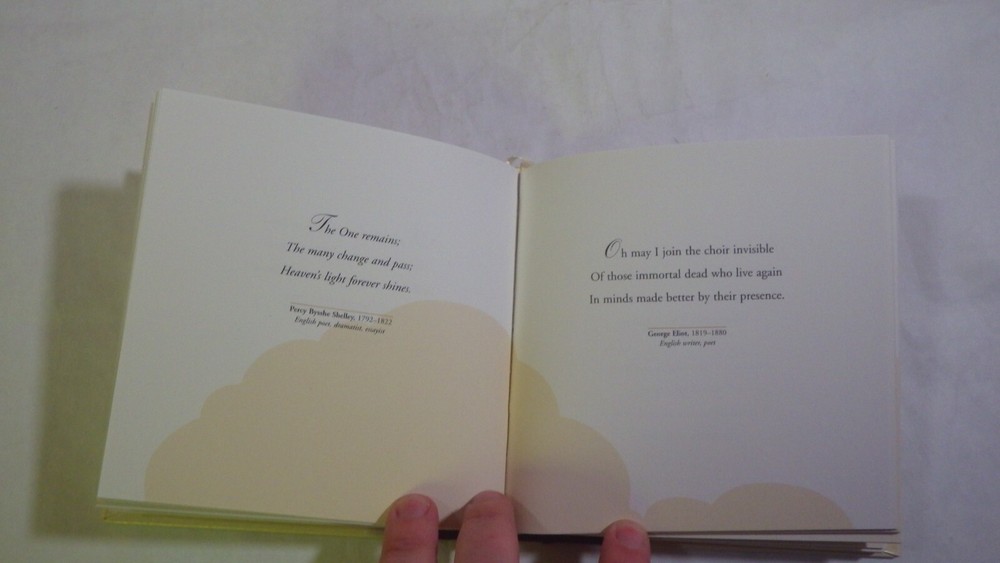 The One remains;
The many change and pass;
Heaven's light forever shines.
Percy Bysshe Shelley, 1792–1822
English poet, dramatist, essayist
Oh may I join the choir invisible
Of those immortal dead who live again
In minds made better by their presence.
George Eliot, 1819–1880
English writer, poet